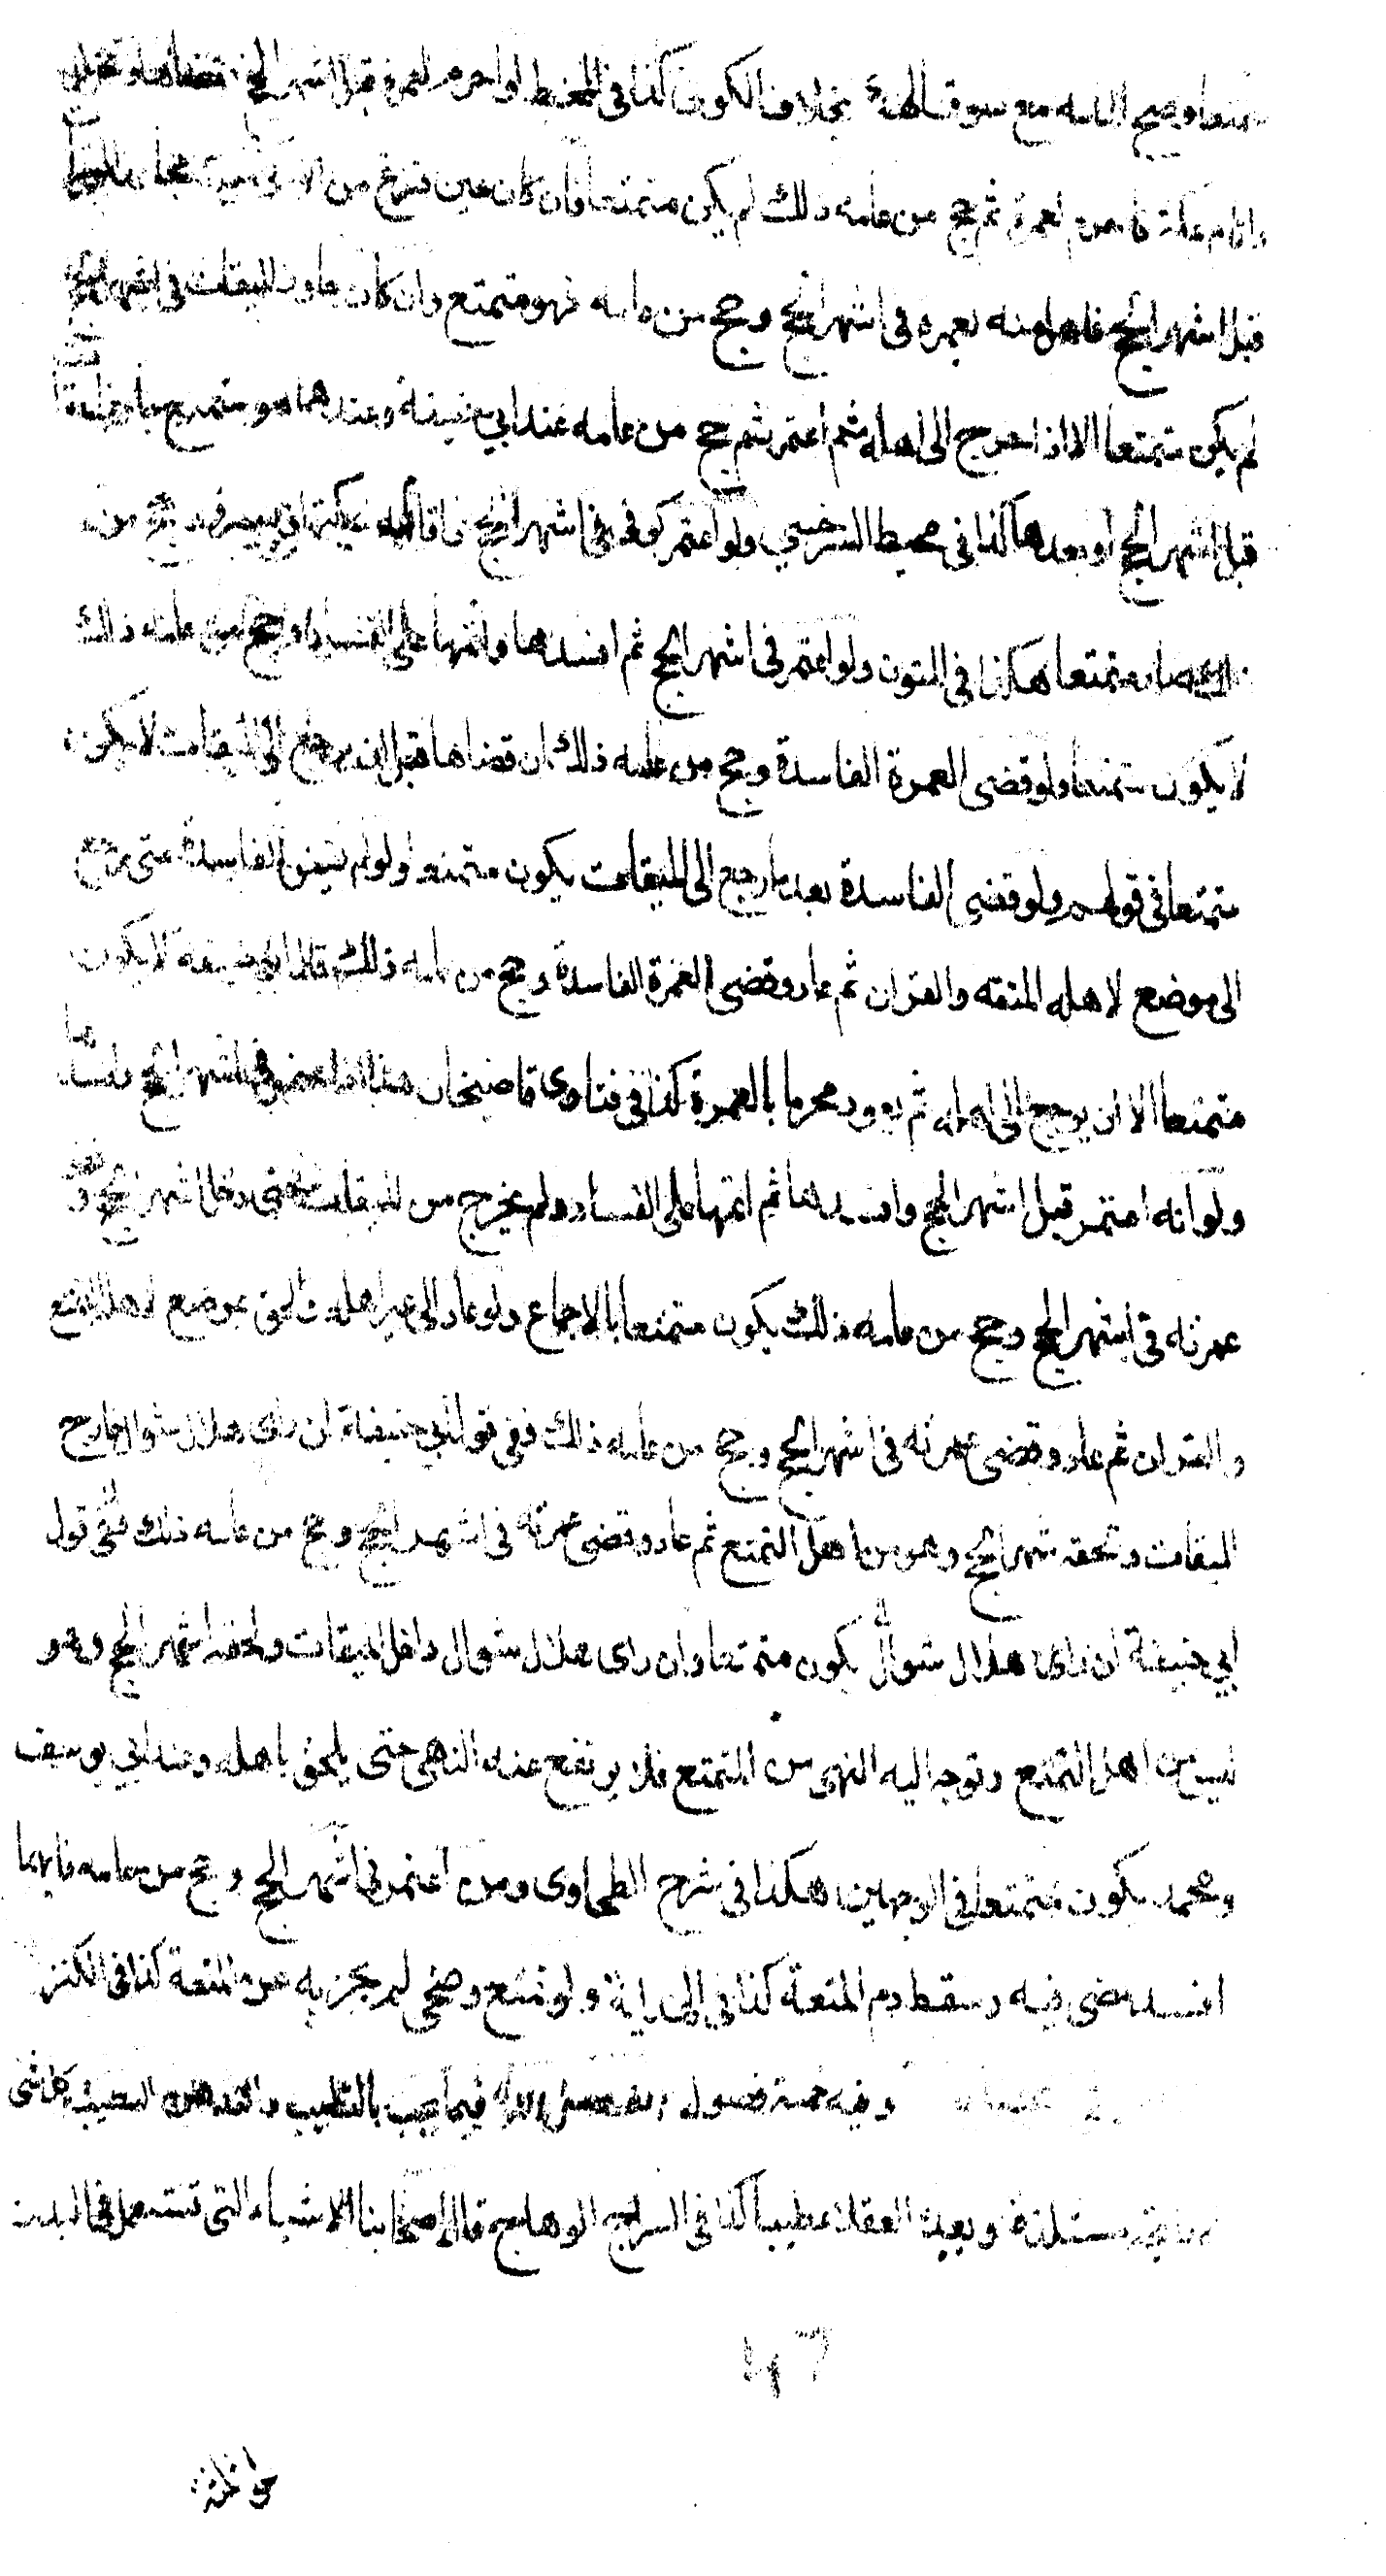 متمتعا وصح المامه مع سوق الهدي بخلاف الكوفي كذا في المحيط لو احرم لعمرة قبل اشهر الحج فقضاها وتحلل
واقام بمكة فاحرم لعمرة ثم حج من عامه ذلك لم يكن متمتعا فان كان حين فرغ من الاولى
قبل اشهر الحج فاهل منه بعمرة في اشهر الحج وحج من عامه فهو متمتع وان كان جاوز الميقات في اشهر الحج
لم يكن متمتعا الا اذا خرج الى اهله ثم اعتمر ثم حج من عامه عند ابي حنيفة وعندهما هو متمتع جاوز الميقات
قبل اشهر الحج او بعدها كذا في محيط السرخسي ولو اعتمر كوفي في اشهر الحج فاقام بمكة او ببصرة وحج من
عامه صار متمتعا هكذا في المتون ولو اعتمر في اشهر الحج ثم افسدها واتمها على الفساد وحج من عامه ذلك
لا يكون متمتعا ولو قضى العمرة الفاسدة وحج من عامه ذلك ان قضاها قبل ان يرجع الى الميقات لا يكون
متمتعا في قولهم ولو قضى الفاسدة بعد ما رجع الى الميقات يكون متمتعا ولو لم يقض الفاسدة حتى رجع
الى موضع لاهله المتعه والقران ثم عاد وقضى العمرة الفاسدة وحج من عامه ذلك قال ابو حنيفه لا يكون
متمتعا الا ان يرجع الى اهله ثم يعود محرما بالعمرة كذا في فتاوى قاضيخان هذا اذا اعتمر في اشهر الحج وافسدها
ولو انه اعتمر قبل اشهر الحج وافسدها ثم اتمها على الفساد ولم يخرج من الميقات حتى دخل اشهر الحج وقضى
عمرته في اشهر الحج وحج من عامه ذلك يكون متمتعا بالاجماع ولو عاد الى غير اهله ولحق بموضع لاهله التمتع
والقران ثم عاد وقضى عمرته في اشهر الحج وحج من عامه ذلك ففي قول ابي حنيفة ان راى هلال شوال خارج
الميقات وتحقه شهر الحج وهو من اهل التمتع ثم عاد وقضى عمرته في اشهر الحج وحج من عامه ذلك ففي قول
ابي حنيفة ان راى هلال شوال يكون متمتعا وان راى هلال شوال داخل الميقات ولحقه اشهر الحج وهو
ليس من اهل التمتع وتوجه اليه النهي من التمتع فلا يرتفع عنه النهي حتى يلحق باهله وعند ابي يوسف
ومحمد يكون متمتعا في الوجهين هكذا في شرح الطحاوى ومن اعتمر في اشهر الحج وحج من عامه فايهما
افسد مضى فيه وسقط دم المتعة كذا في الهداية ولو تمتع وضحى لم يجزيه عن المتعة كذا في الكنز
وفيه خمسة فصول الفصل الاول فيما يجب بالتطيب والتدهن الطيب كل شي
له رائحة مستلذة ويعده العقلاء طيبا كذا في السراج الوهاج قال اصحابنا الاشياء التي تستعمل في البدن